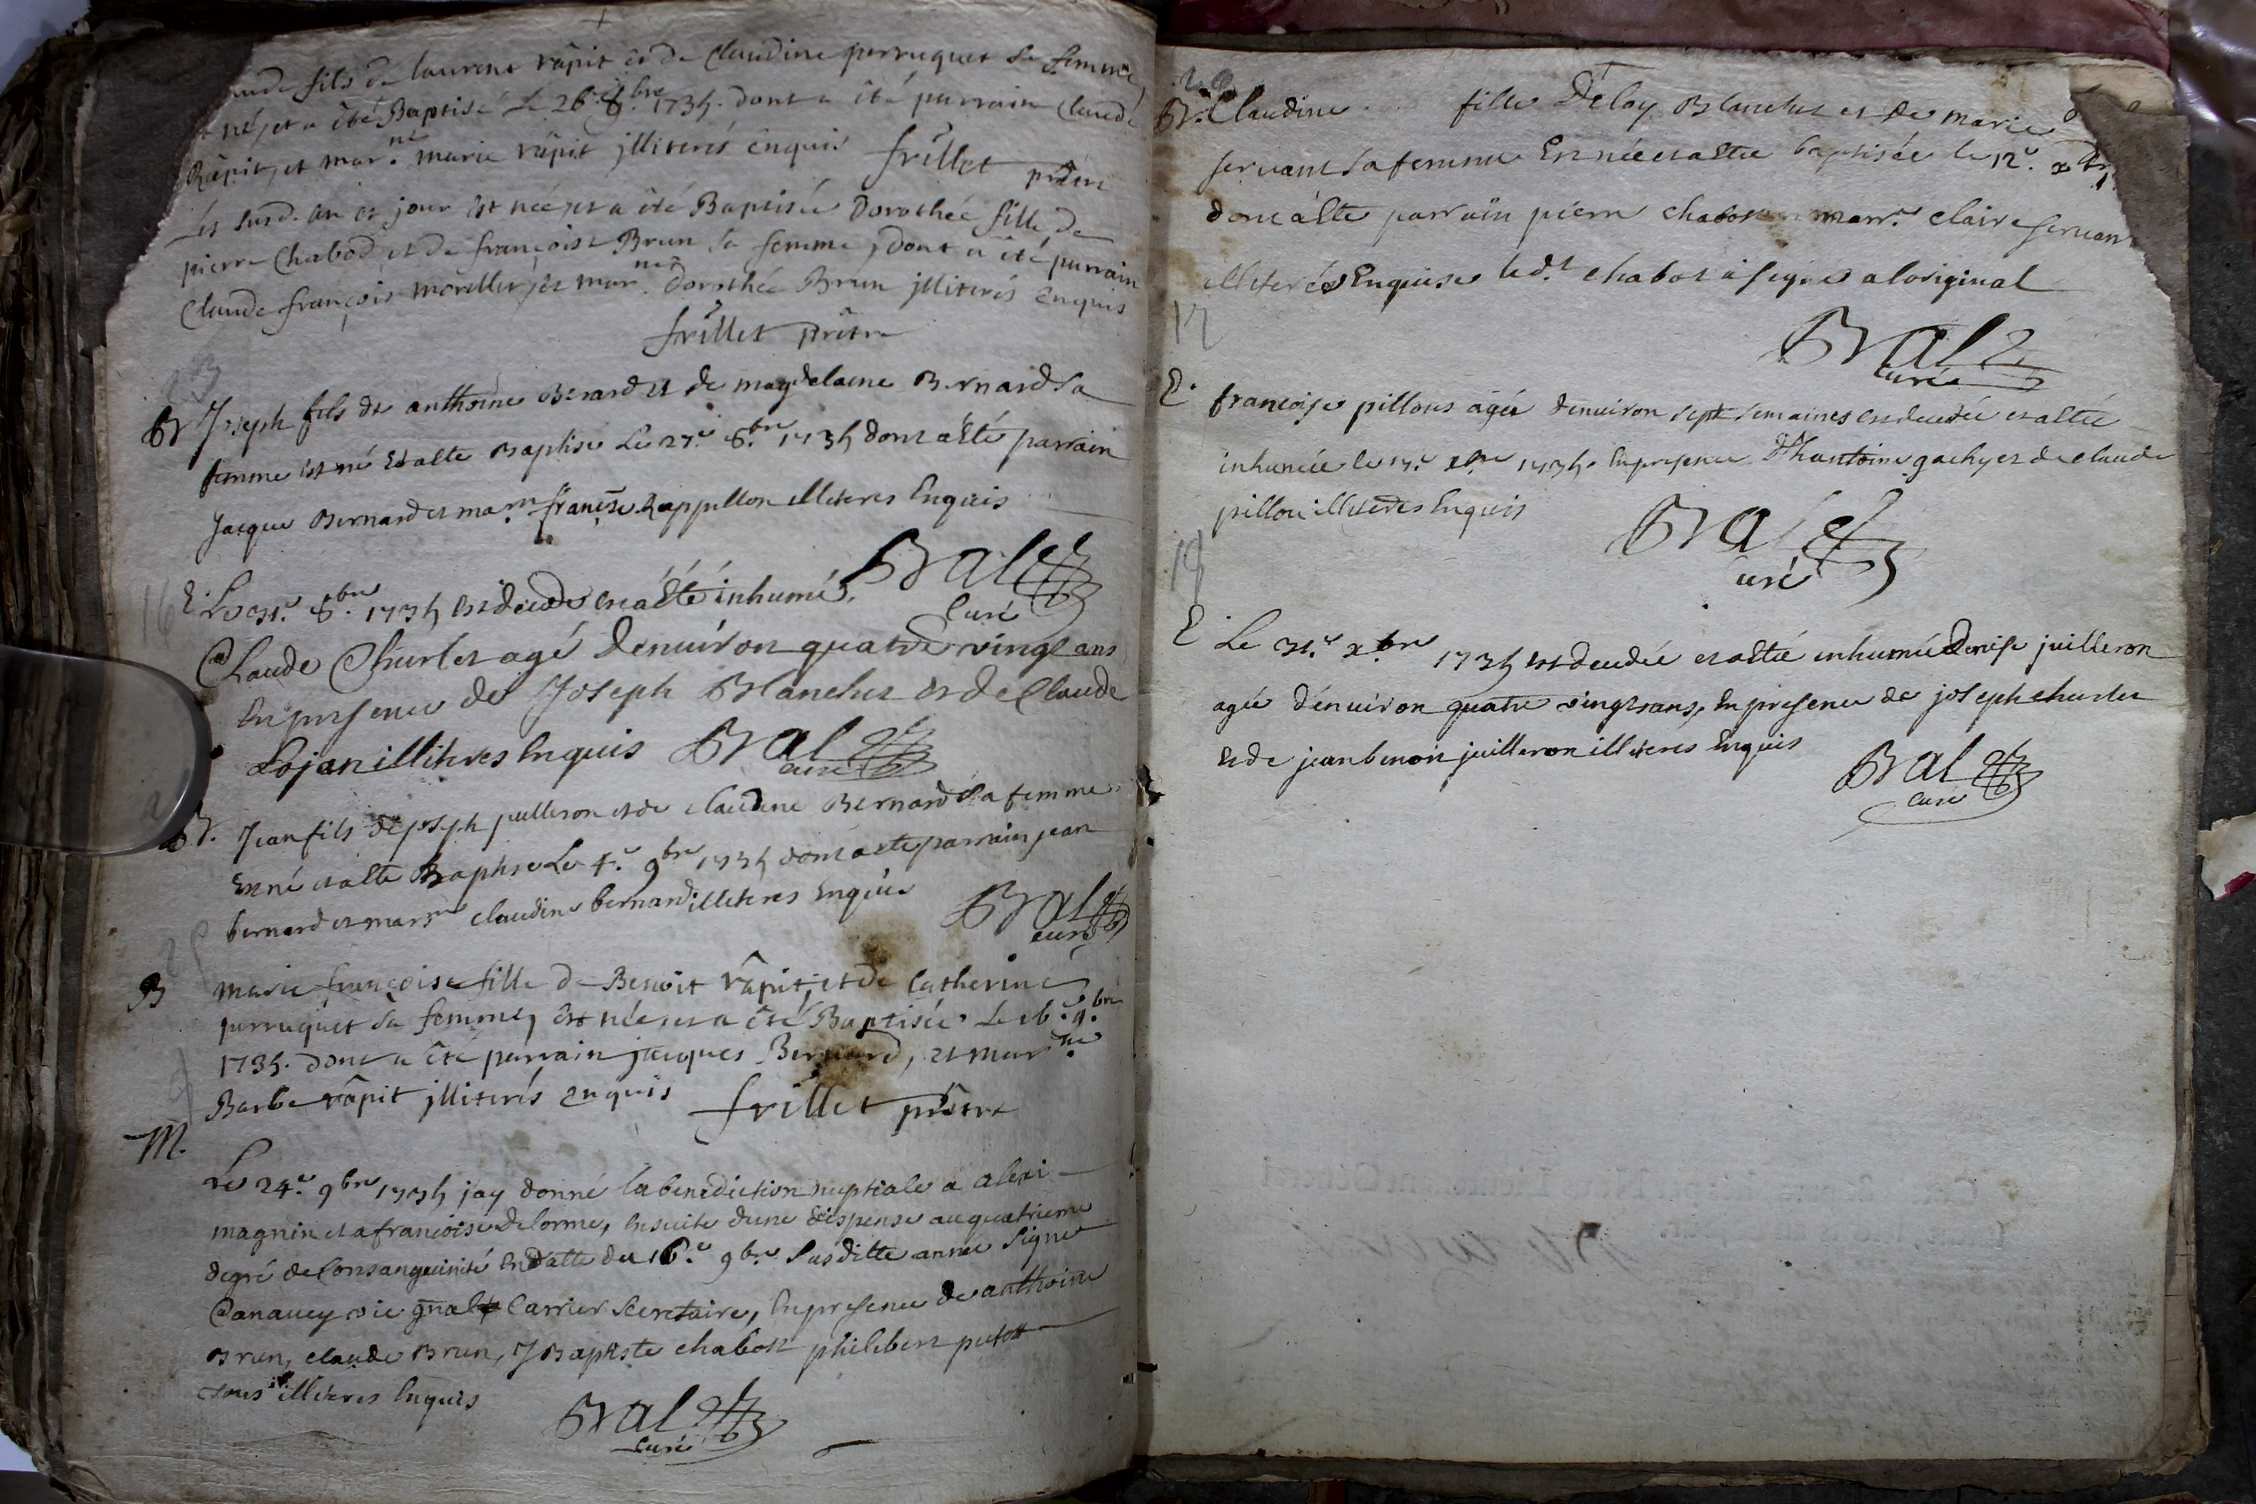 fils de laurent râpit et de Claudine perruquet sa femme,
né, et a êté Baptisé Le 26e 8.bre 1735. dont a êté parrain Claude
Râpit, et mar.ne marie râpit jlliterés enquis frillet prêtre
Les susd. an et jour est née, et a êté Baptisée Dorothée fille de
pierre Chabod et de françoise Brun sa femme, dont a êté parrain
Claude françois morellet, et mar.ne dorothée Brun jlliterés enquis
frillet prêtre
23
B Joseph fils de anthoine Berard et de magdelaine Bernard sa
femme est né et a esté Baptisé Le 27.e 8.bre 1735 dont a esté parrain
Jacque Bernard et marr.ne franç.se Rappillon illiteres Enquis
Bral
curé
16
E. Le 31.e 8.bre 1735 est décédé et a été inhumé
Claude Churlet agé denuiron quatre vingt ans
En presence de Joseph Blanchet et de Claude
Lojan illiteres Enquis Bral
curé
B. Jean fils de joseph juilleron et de claudine Bernard sa femme
Est né et a esté Baptisé Le 4.e 9bre 1735 dont a esté parrain jean
bernard et marr.ne claudine bernard illiteres Enquis Bral
curé
25
B marie françoise fille de Benoit râpit, et de Catherine
perruquet sa femme, est née, et a êté Baptisée Le 16.e 9.bre
1735. dont a êté parrain jacques Bernard, et mar.ne
Barbe râpit jlliterés enquis frillet prêtre
9
M.
Le 24.e 9bre 1735 jay donné la benediction nuptiale a alexi
magnin et a francoise delorme, Ensuite dune dispense au quatrieme
degré de Consanguinité En datte du 16.e 9bre Susditte annee Signé
Canauey vic gnal Carrier Secretaire, En presence de anthoine
Brun, claude Brun, J Baptiste chabot philibert putot
tous illiteres Enquis
Bral
curé
B. Claudine fille Déloy Blanchet et de marie
seruant sa femme Est née et a esté baptisée le 12.e xbre
dont a esté parrain pierre chabot marr.e claire seruant
illiterés Enquise led.t chabot a signé a loriginal
Bral
curé
17
E. francoise pillous agée denuiron sept semaines est decedée et a esté
inhumée le 17.e xbre 1735. En presence d'hantoine gachy et de claude
pillou illiterés Enquis
Bral
curé
18
E Le 31.e xbre 1735 est decedée et a esté inhumée denise juilleron
agée dénuiron quatre vingts ans, En presence de joseph churlet
et de jean benoit juilleron illiteres Enquis
Bral
curé